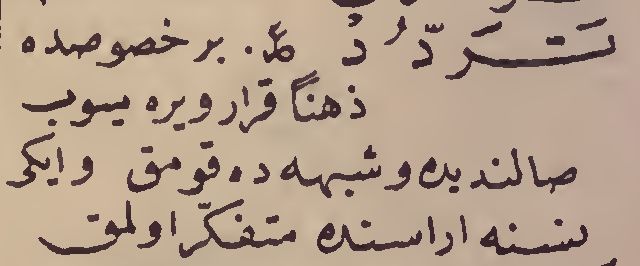 تَرَدُّدْ ع. بر خصوصده
ذهناً قرار ویره میوب
صالندیده و شبهه ده قومق و ایکی
نسنه اراسنده متفکّر اولمق